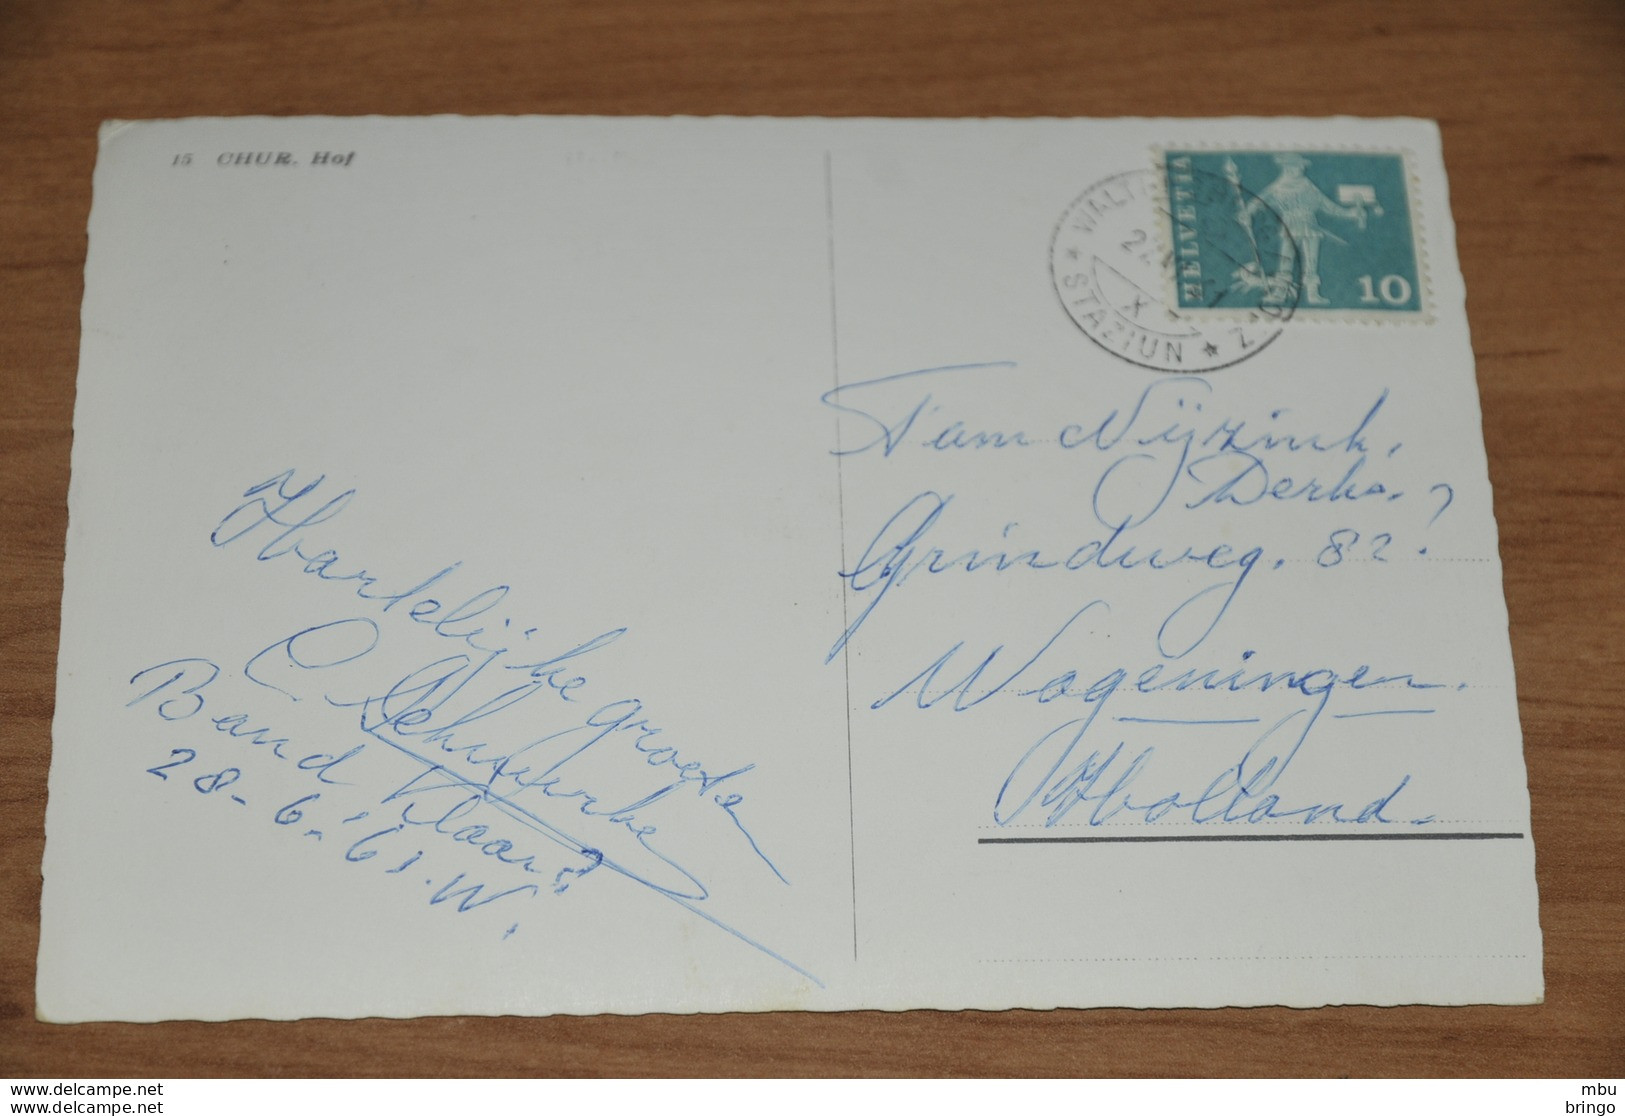 15 CHUR. Hof
HELVETIA
10
STAZIUN
Hartelijke groeten
Band
28-6-'61. W.
Fam Nijzink.
Derks.
Grindweg. 82?
Wageningen.
Holland.
www.delcampe.net
www.delcampe.net
mbu
bringo